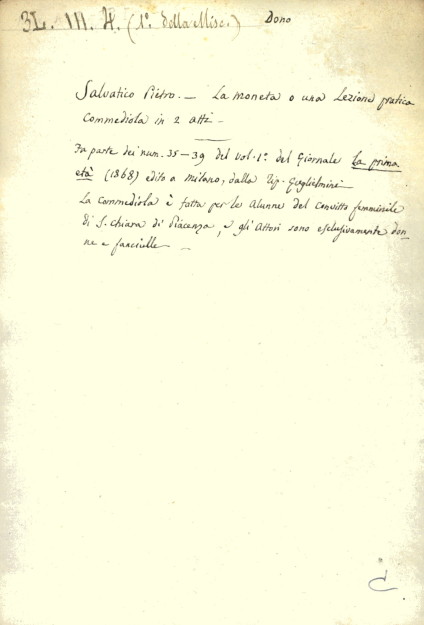 3L. III. 4. (1°. della Misc.) Dono
Salvatico Pietro. — La moneta o una Lezione pratica
Commediola in 2 atti —
Fa parte dei num. 35 — 39 del vol. 1°. del Giornale La prima
età (1868) edito a Milano, dalla Tip. Guglielmini
La Commediola è fatta per le Alunne del Convitto femminile
di S. Chiara di Piacenza, e gli Attori sono esclusivamente don-
ne e fanciulle —
C